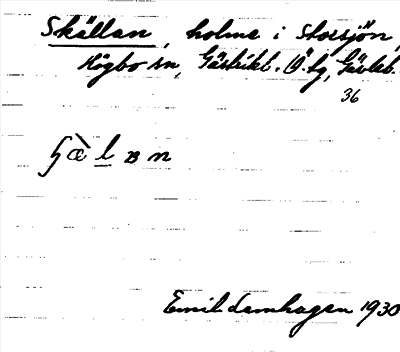 Skällan, holme i Storsjön,
Högbo sn, Gästrikl. Ö. tg, Gävleb.
36
Emil Lamhagen 1930